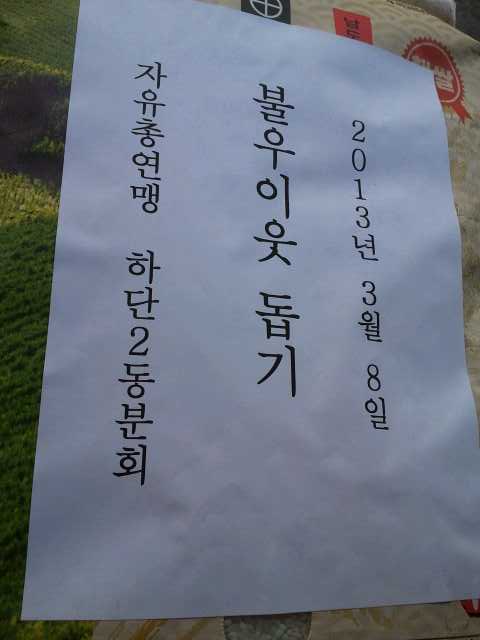 2013년 3월 8일
불우이웃 돕기
자유총연맹 하단2동분회